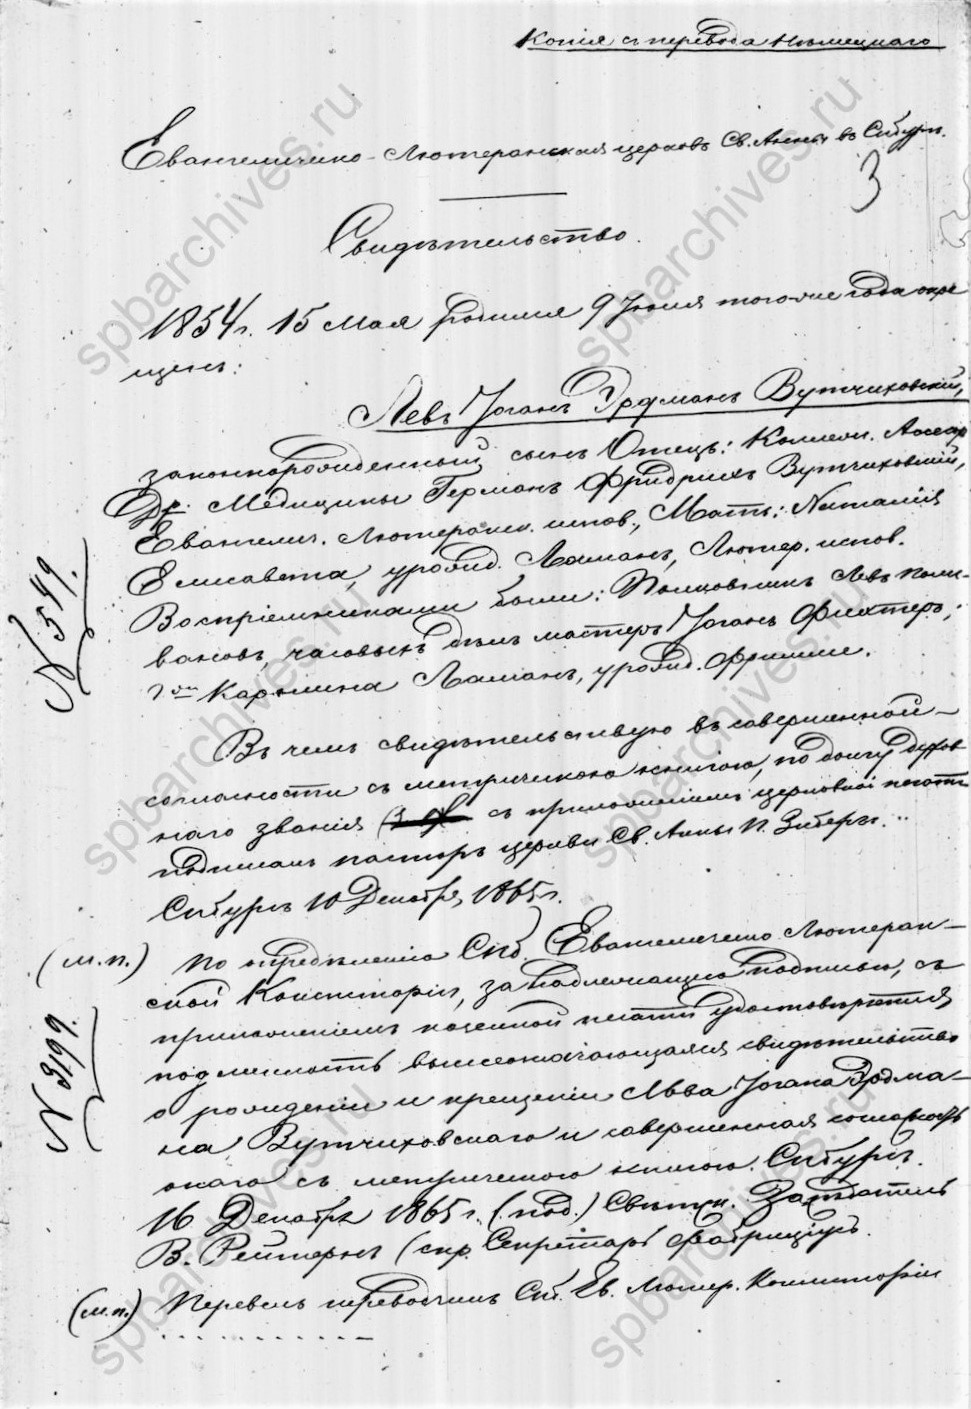 Копія съ перевода Нѣмецкаго
Евангелическо-Лютеранская церковь Св. Анны въ С.Пбургѣ.
3
Свидѣтельство.
1854 г. 15 Мая родился 9 Іюня того же года окре
щенъ:
Левъ Іоганъ Эрдманъ Вутчиховскій,
законнорожденный сынъ Отецъ: Коллеж. Ассесор
Др. Медицины Германъ Фридрихъ Вутчиховскій,
Евангелич. Лютеранск. испов., Мать: Наталія
Елисавета, урожд. Ломанъ, Лютер. испов.
Воспріемниками были: Полковникъ Левъ Поли-
вановъ, часовыхъ дѣлъ мастеръ Іоганъ Фихтеръ,
Каролина Ломанъ, урожд.
Въ чемъ свидѣтельствую въ совершенной
согласности съ метрическою книгою, по долгу духов
наго званія съ приложеніемъ церковной печати
подписалъ пасторъ церкви Св. Анны
С.Пбургъ 10 Декабря, 1865 г.
№ 549.
(м.п.) По опредѣленію Спб. Евангелическо Лютеран-
ской Консисторіи, за надлежащею подписью, съ
приложеніемъ казенной печати удостовѣряется
подлинность вышеозначающагося свидѣтельства
о рожденіи и крещеніи Льва Іогана Эрдма-
на Вутчиховскаго и совершенная согласность
онаго съ метрическою книгою. С.Пбургъ.
16 Декабря 1865 г. (под.) Свѣтск. Засѣдатель
В. Рейтернъ (скр. Секретарь Фабриціусъ.
№ 3199.
(м.п.) Перевелъ переводчикъ Спб. Ев. Лютер. Консисторіи
. . . . . . . . . . .
spbarchives.ru
spbarchives.ru
spbarchives.ru
spbarchives.ru
spbarchives.ru
spbarchives.ru